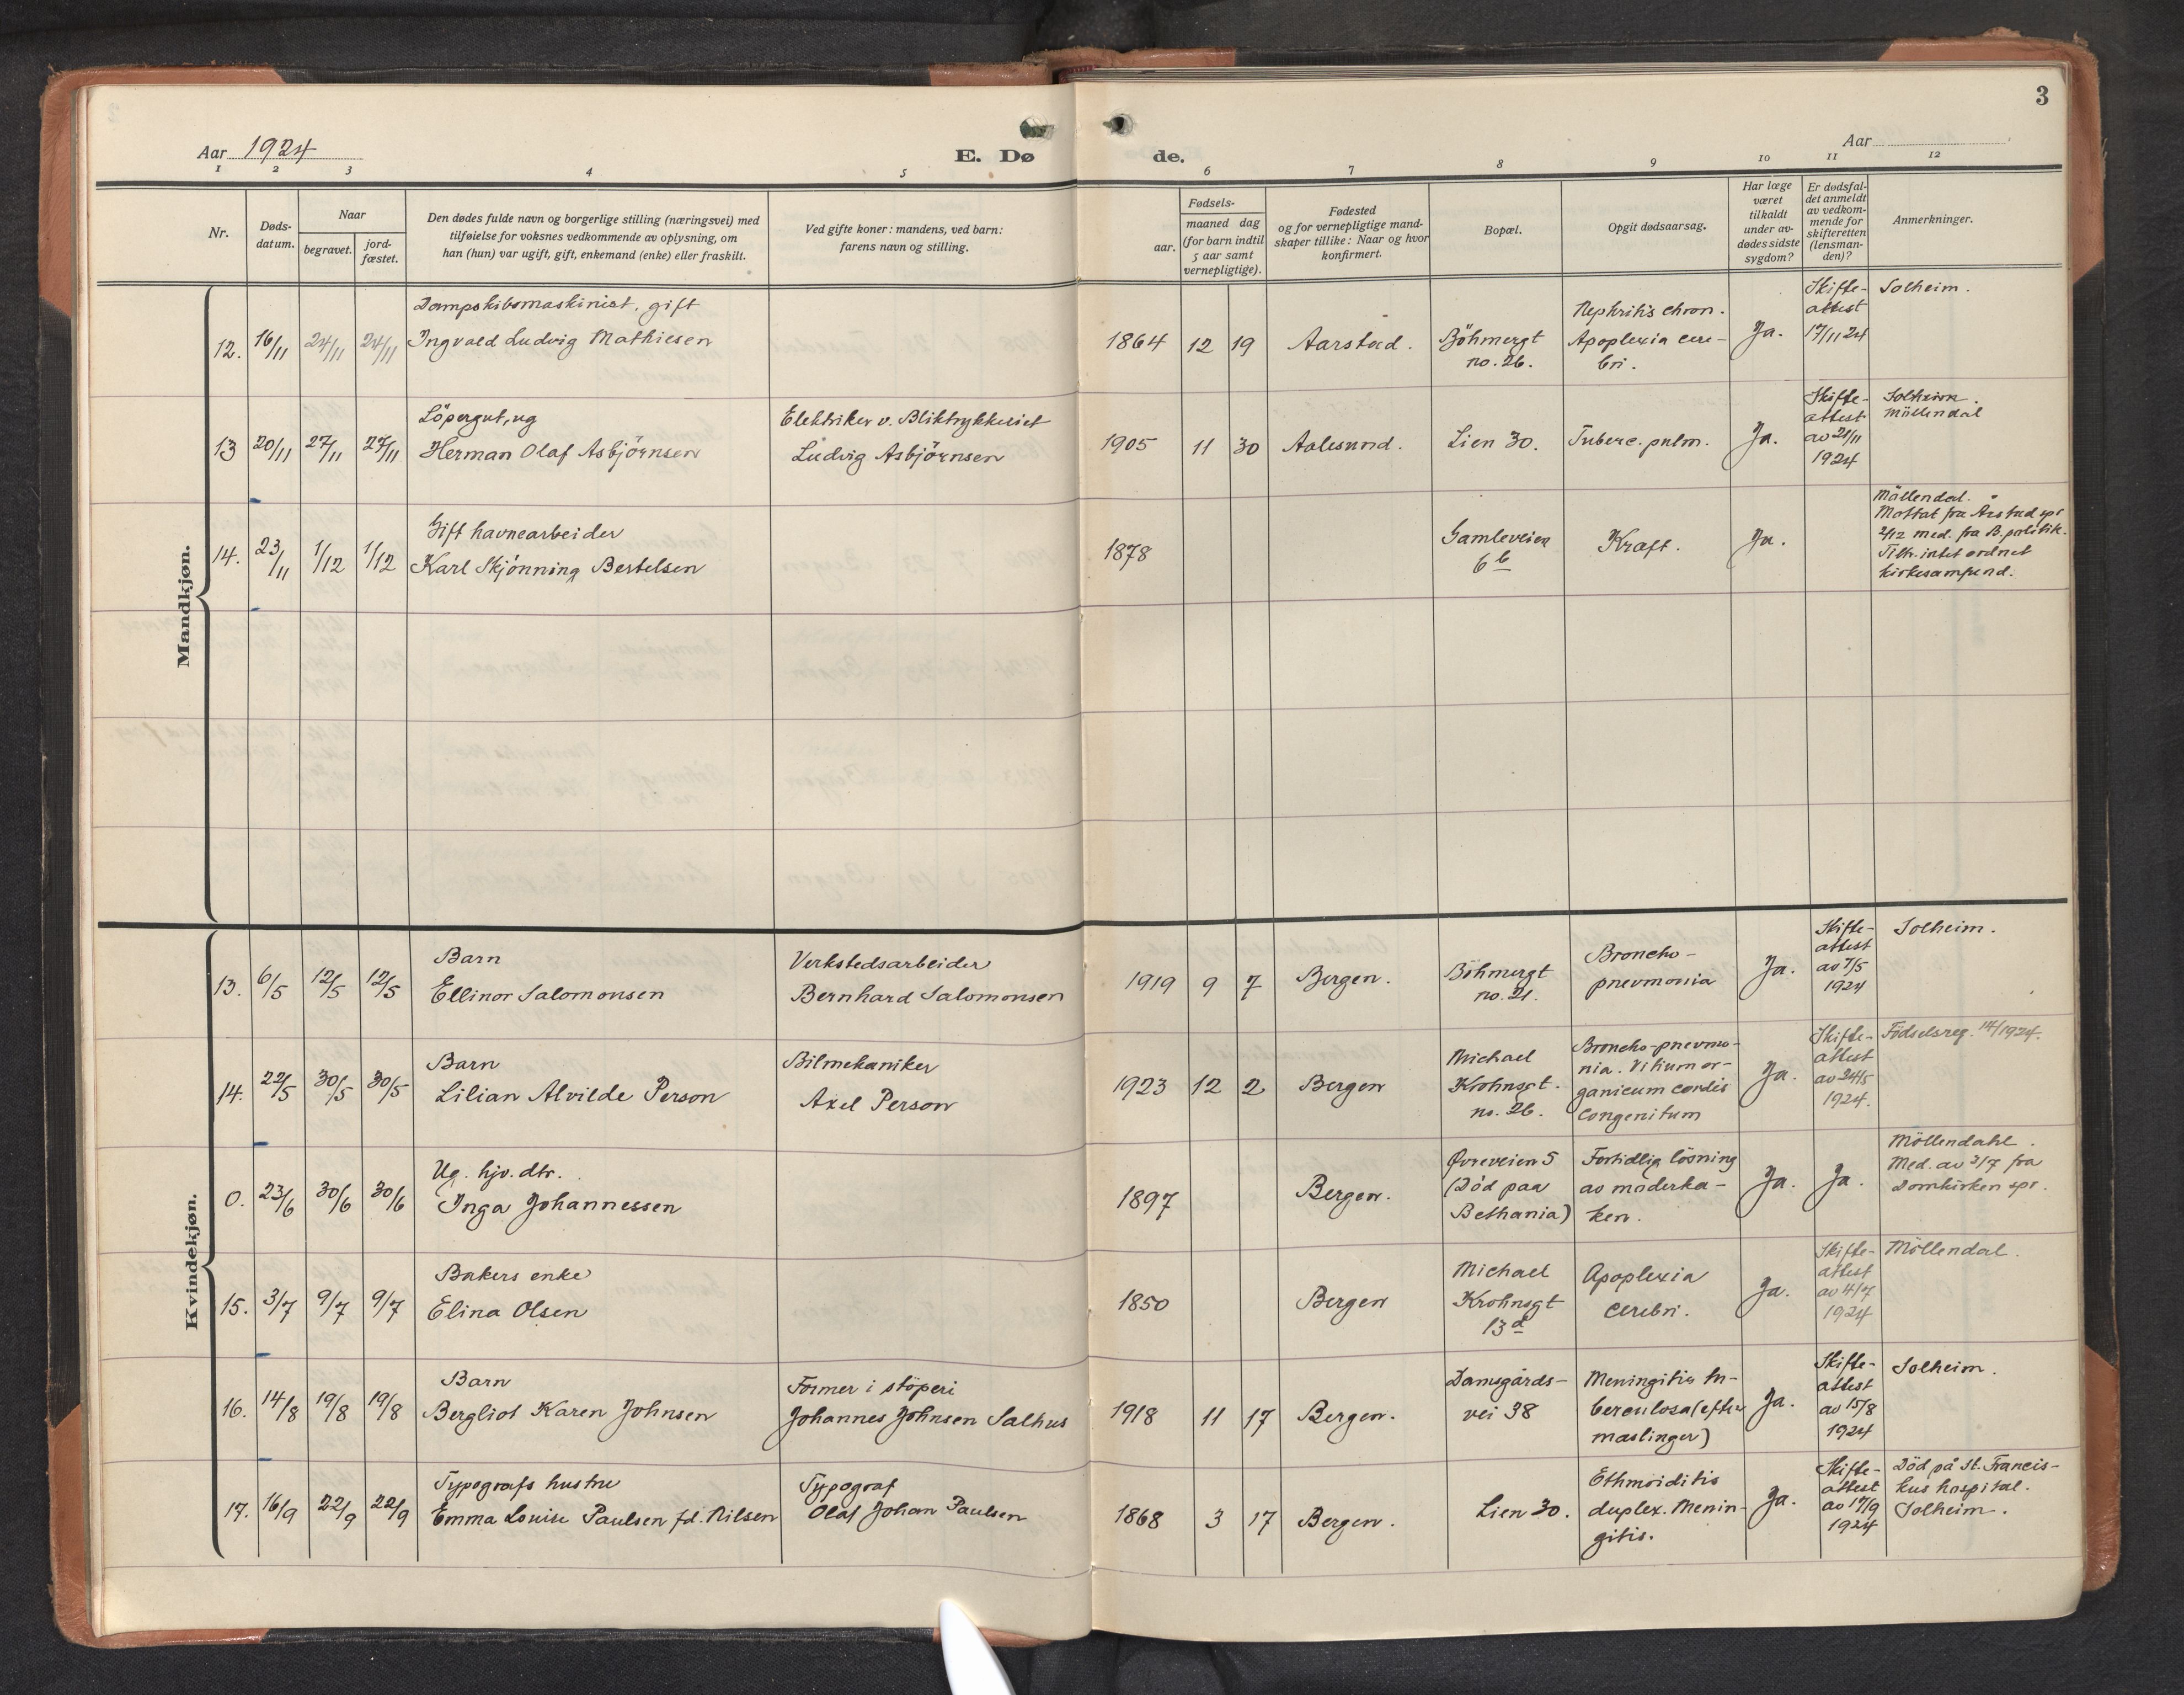 3
Aar 1924
E. Døde.
Aar
1 2 3 4 5 6 7 8 9 10 11 12
Nr.
Døds-
datum.
Naar
begravet.
jord-
fæstet.
Den dødes fulde navn og borgerlige stilling (næringsvei) med
tilføielse for voksnes vedkommende av oplysning, om
han (hun) var ugift, gift, enkemand (enke) eller fraskilt.
Ved gifte koner: mandens, ved barn:
farens navn og stilling.
Fødsels-
aar.
maaned dag
(for barn indtil
5 aar samt
vernepligtige).
Fødested
og for vernepligtige mand-
skaper tillike: Naar og hvor
konfirmert.
Bopæl.
Opgit dødsaarsag.
Har læge
været
tilkaldt
under av-
dødes sidste
sygdom?
Er dødsfal-
det anmeldt
av vedkom-
mende for
skifteretten
(lensman-
den)?
Anmerkninger.
Mandkjøn.
12. 16/11 24/11 24/11
Dampskibsmaskinist, gift
Ingvald Ludvig Mathiesen
1864 12 19 Aarstad.
Böhmergt
no. 26.
Nephritis chron.
Apoplexia cere-
bri.
Ja.
Skifte-
attest
17/11 24
Solheim.
13 20/11 27/11 27/11
Löpergut, ug
Herman Olaf Asbjörnsen
Elektriker v. Bliktrykkeriet
Ludvig Asbjörnsen
1905 11 30 Aalesund. Lien 30. Tuberc. pulm. Ja.
Skifte-
attest
av 21/11
1924
Solheim.
Möllendal
14. 23/11 1/12 1/12
Gift havnearbeider
Karl Skjönning Bertelsen
1878
Gamleveien
6 b
Kræft. Ja.
Möllendal.
Mottat fra Årstad spr
2/12 med. fra B. politik.
Tilh. intet ordnet
kirkesamfund.
Kvindekjøn.
13. 6/5 12/5 12/5
Barn
Ellinor Salomonsen
Verkstedsarbeider
Bernhard Salomonsen
1919 9 7 Bergen.
Böhmergt
no. 21.
Broncho-
pnevmonia
Ja.
Skifte-
attest
av 7/5
1924
Solheim.
14. 22/5 30/5 30/5
Barn
Lilian Alvilde Person
Bilmekaniker
Axel Person
1923 12 2 Bergen
Michael
Krohnsgt.
no. 26.
Broncho-pnevmo-
nia. Vitium or-
ganicum cordis
congenitum
Ja.
Skifte-
attest
av 24/5
1924.
Födselsreg. 14/1924.
0. 23/6 30/6 30/6
Ug. hjv. dtr.
Inga Johannessen
1897 Bergen.
Øvreveien 5
(Död paa
Bethania)
Fortidlig lösning
av moderka-
ken.
Ja. Ja.
Möllendahl.
Med. av 3/7 fra
Domkirken spr.
15. 3/7 9/7 9/7
Bakers enke
Elina Olsen
1850 Bergen
Michael
Krohnsgt
13 d
Apoplexia
cerebri.
Ja.
Skifte-
attest
av 4/7
1924
Möllendal.
16. 14/8 19/8 19/8
Barn
Bergliot Karen Johnsen
Former i stöperi
Johannes Johnsen Salhus
1918 11 17 Bergen.
Damsgårds-
vei 38
Meningitis tu-
berculosa (efter
maslinger)
Ja.
Skifte-
attest
av 15/8
1924
Solheim.
17. 16/9 22/9 22/9
Typografs hustru
Emma Louise Paulsen fd. Nilsen
Typograf
Olaf Johan Paulsen
1868 3 17 Bergen. Lien 30.
Ethmoiditis
duplex. Menin-
gitis.
Ja.
Skifte-
attest
av 17/9
1924
Död på St. Francis-
kus hospital.
Solheim.